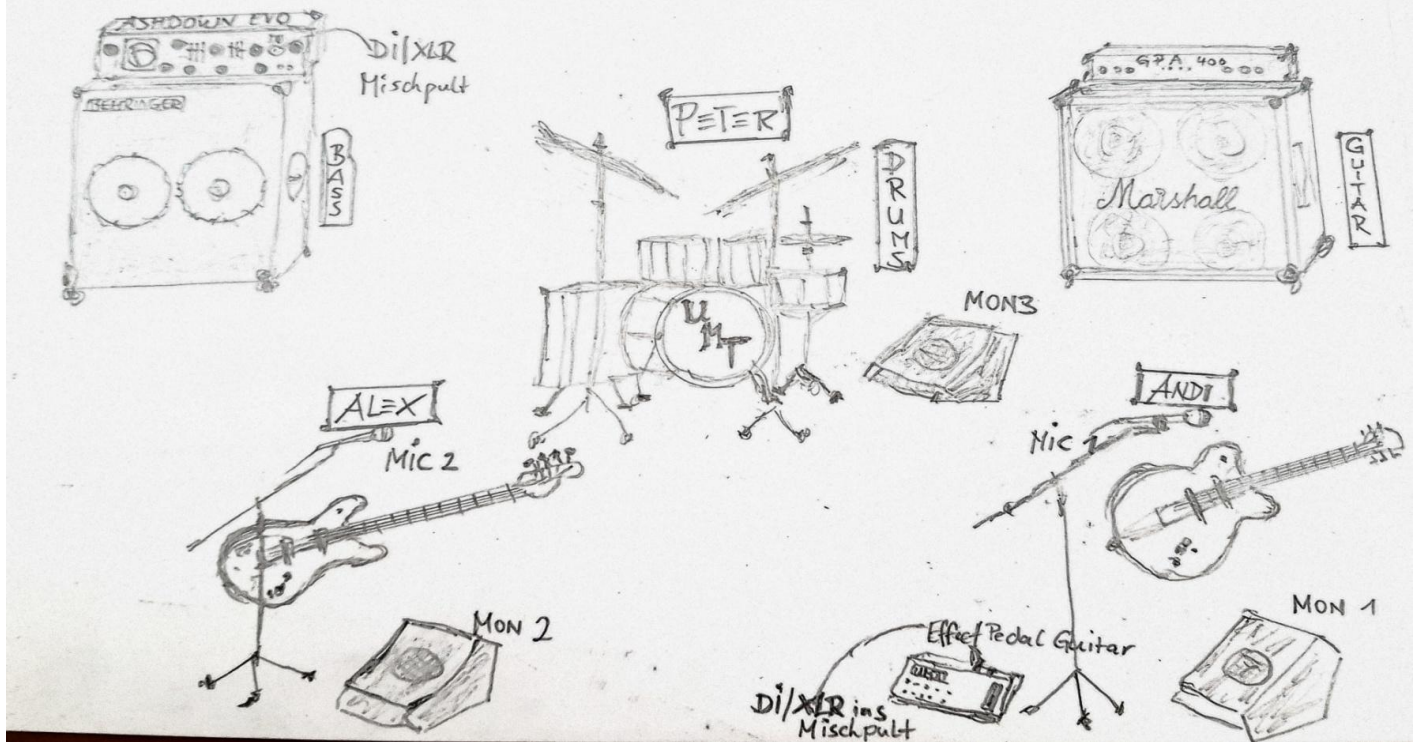 ASHDOWN EVO
Di/XLR
Mischpult
BEHRINGER
BASS
PETER
DRUMS
GPA 400
Marshall
GUITAR
UMT
MON3
ALEX
Mic 2
ANDI
Mic 1
MON 2
MON 1
Effect Pedal Guitar
Di/XLR ins
Mischpult